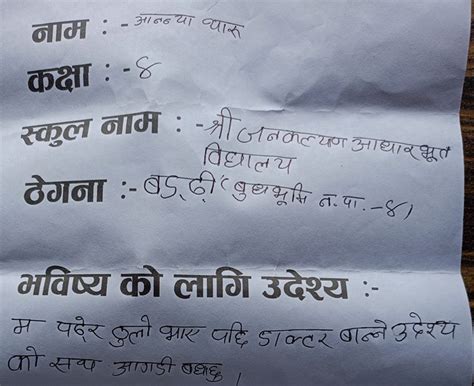 नाम :- आनन्या थारू
कक्षा :- ४
स्कुल नाम :- श्री जनकल्याण आधारभूत
विद्यालय
ठेगना :- बड्ढी (बुद्धभूमि न.पा. -४)
भविष्य को लागि उदेश्य :-
म पढेर ठुलो भाए पछि डाक्टर बान्ने उदेश्य
को साथ आगाडी बढ्छु ।